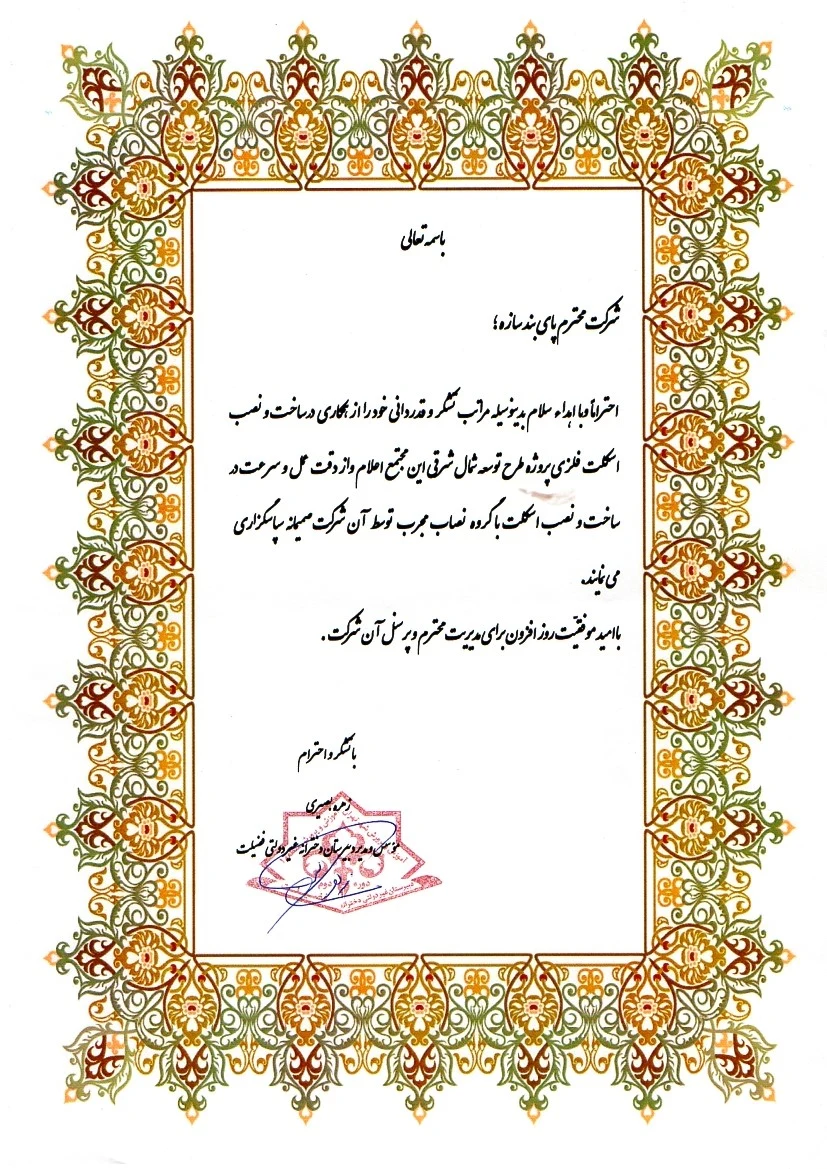 باسمه تعالی
شرکت محترم پای بند سازه؛
احتراماً و با اهداء سلام بدینوسیله مراتب تشکر و قدردانی خود را از همکاری در ساخت و نصب
اسکلت فلزی پروژه طرح توسعه شمال شرقی این مجتمع اعلام و از دقت عمل و سرعت در
ساخت و نصب اسکلت با گروه نصاب مجرب توسط آن شرکت صمیمانه سپاسگزاری
می نمایند.
با امید موفقیّت روز افزون برای مدیریت محترم و پرسنل آن شرکت.
با تشکر و احترام
زهره بصیری
موسس و مدیر دبیرستان دخترانه غیر دولتی فضیلت
دوره دوم
دبیرستان غیردولتی دخترانه